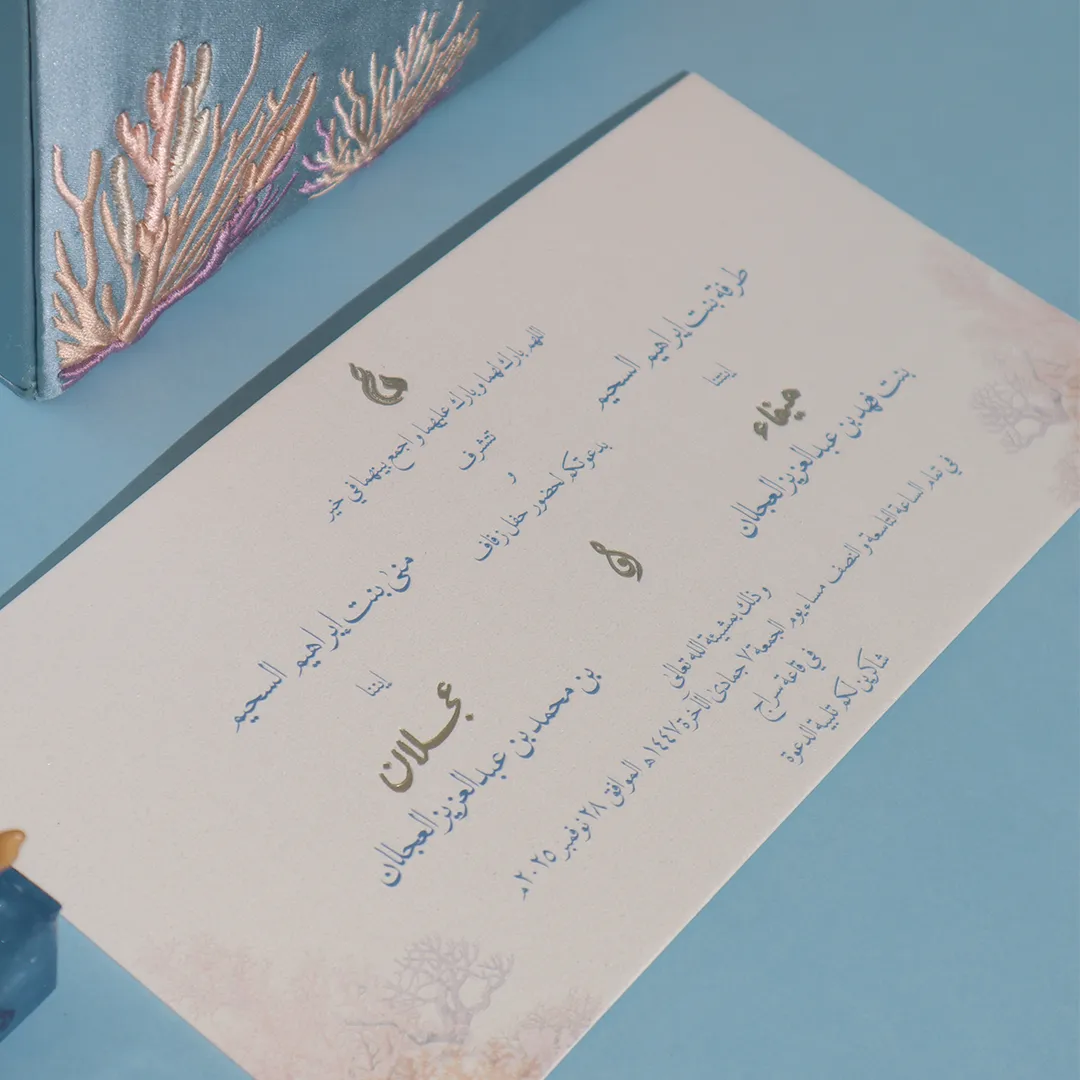 اللهم بارك لهما وبارك عليهما واجمع بينهما في خير
تتشرف
طرفة بنت إبراهيم السحيم
و
منى بنت إبراهيم السحيم
بدعوتكم لحضور حفل زفاف
إبنتنا
ميفاء
بنت فهد بن عبدالعزيز العجلان
و
إبننا
عجلان
بن محمد بن عبدالعزيز العجلان
وذلك بمشيئة الله تعالى
في تمام الساعة التاسعة والنصف مساء يوم الجمعة ٧ جمادى الآخرة ١٤٤٧هـ الموافق ٢٨ نوفمبر ٢٠٢٥م
في قاعة سراج
شاكرين لكم تلبية الدعوة